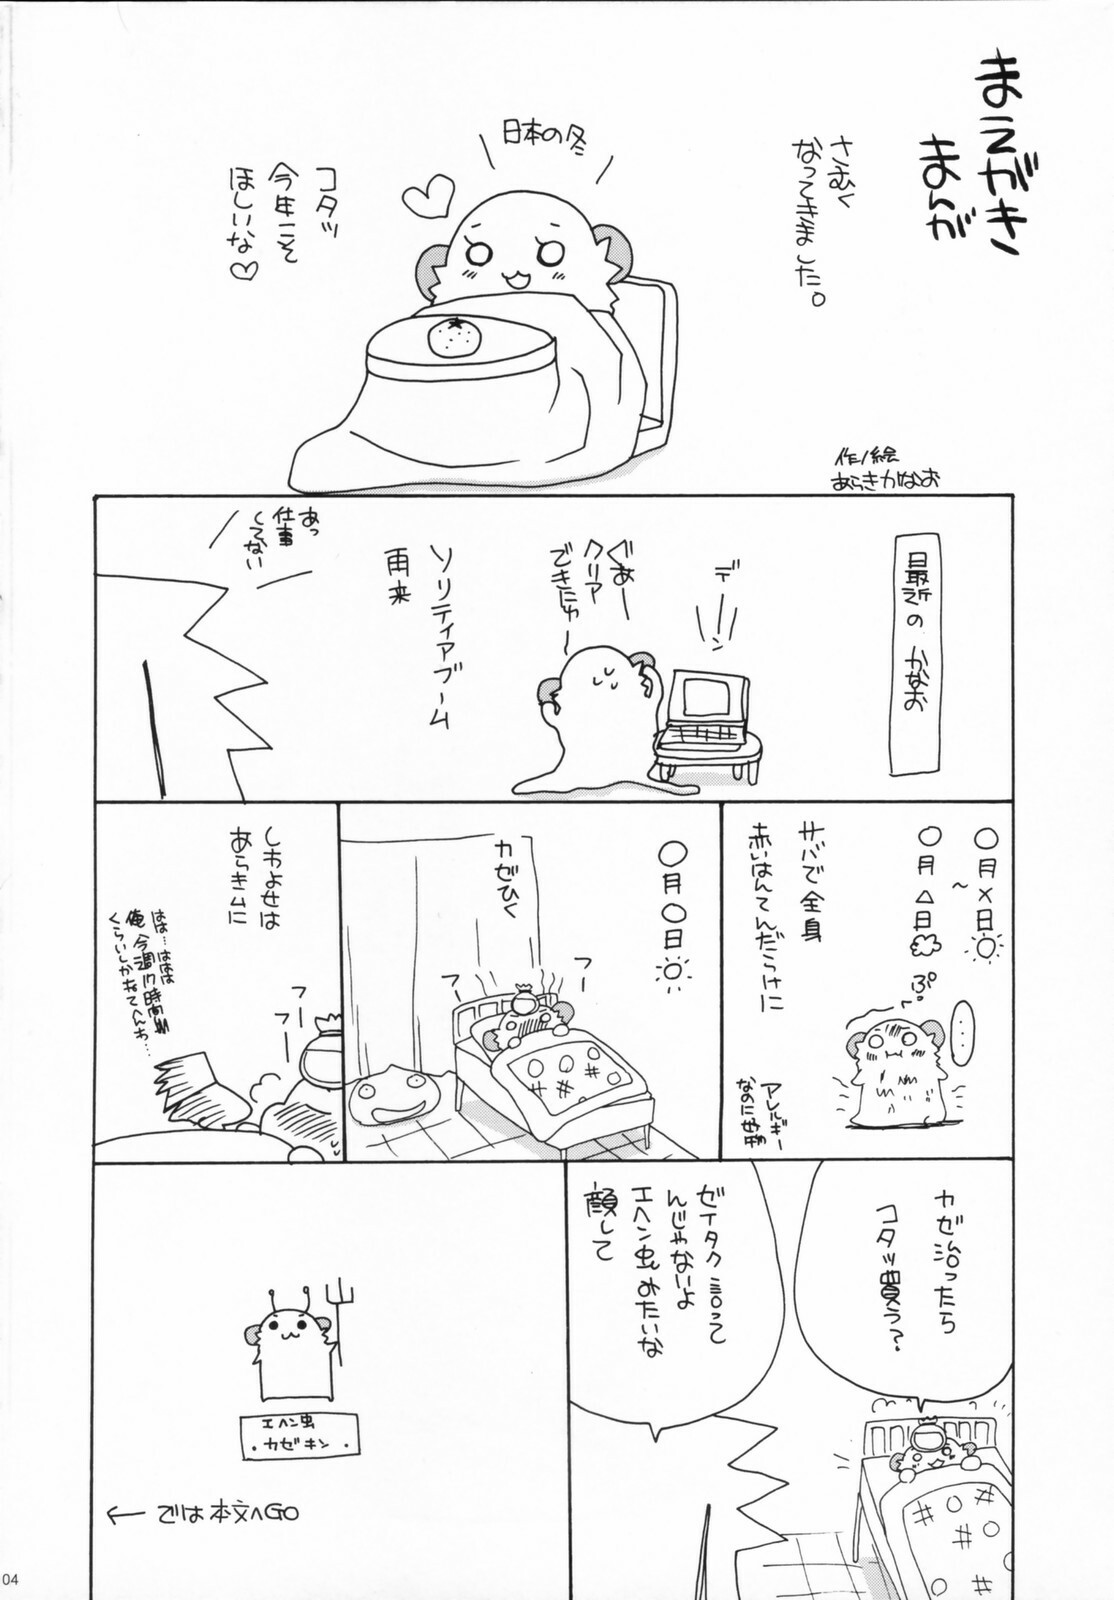 まえがき
まんが
さむく
なってきました。
日本の冬
コタツ
今年こそ
ほしいな♡
作/絵
あらきかなお
最近のかなお
デーン
ぐあー
クリア
できにゅー
ソリティアブーム
再来
あっ
仕事
してない
○月×日
～
○月△日
サバで全身
赤いはんてんだらけに
ぷ。
……
アレルギー
なのに好物
○月○日
カゼひく
フー
フー
しわよせは
あらきムに
はは…ははは
俺今週17時間
くらいしかねてへんわ…
フー
フー
カゼ治ったら
コタツ買う?
ゼイタク言って
んじゃないよ
エヘン虫みたいな
顔して
エヘン虫
・カゼキン・
← では本文へGO
04